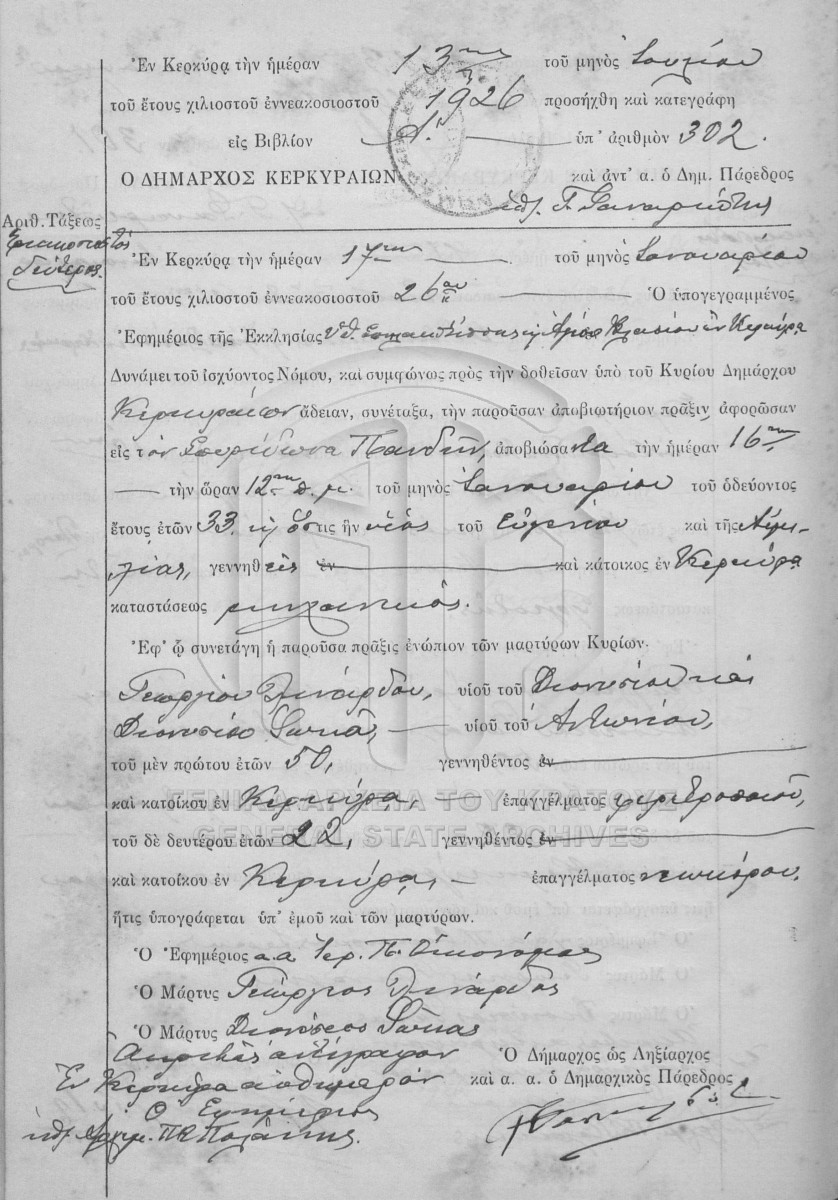 Ἐν Κερκύρᾳ τὴν ἡμέραν 13ην τοῦ μηνὸς Ἰουλίου
τοῦ ἔτους χιλιοστοῦ ἐννεακοσιοστοῦ 1926 προσήχθη καὶ κατεγράφη
εἰς Βιβλίον Α΄. ὑπ' ἀριθμὸν 302.
Ο ΔΗΜΑΡΧΟΣ ΚΕΡΚΥΡΑΙΩΝ καὶ ἀντ' α. ὁ Δημ. Πάρεδρος
Ἀριθ. Τάξεως
Τριακοσιοστὸς
δεύτερος.
Ἐν Κερκύρᾳ τὴν ἡμέραν 17ην τοῦ μηνὸς Ἰανουαρίου
τοῦ ἔτους χιλιοστοῦ ἐννεακοσιοστοῦ 26ου Ὁ ὑπογεγραμμένος
Ἐφημέριος τῆς Ἐκκλησίας Ὑ.Θ. Σπηλαιωτίσσης καὶ Ἁγίου Βλασίου ἐν Κερκύρᾳ
Δυνάμει τοῦ ἰσχύοντος Νόμου, καὶ συμφώνως πρὸς τὴν δοθεῖσαν ὑπὸ τοῦ Κυρίου Δημάρχου
Κερκυραίων ἄδειαν, συνέταξα, τὴν παροῦσαν ἀποβιωτήριον πρᾶξιν, ἀφορῶσαν
εἰς τὸν Σπυρίδωνα Πανδῆν, ἀποβιώσαντα τὴν ἡμέραν 16ην
τὴν ὥραν 12ην π. μ. τοῦ μηνὸς Ἰανουαρίου τοῦ ὁδεύοντος
ἔτους ἐτῶν 33. καὶ ὅστις ἦν υἱὸς τοῦ Εὐγενίου καὶ τῆς Αἰμι
λίας, γεννηθεὶς ἐν καὶ κάτοικος ἐν Κερκύρᾳ
καταστάσεως μηχανικός.
Ἐφ' ᾧ συνετάγη ἡ παροῦσα πρᾶξις ἐνώπιον τῶν μαρτύρων Κυρίων.
Γεωργίου Λινάρδου, υἱοῦ τοῦ Διονυσίου καὶ
Διονυσίου Σουκᾶ, υἱοῦ τοῦ Ἀντωνίου,
τοῦ μὲν πρώτου ἐτῶν 50, γεννηθέντος ἐν
καὶ κατοίκου ἐν Κερκύρᾳ, ἐπαγγέλματος φερετροποιοῦ,
ΓΕΝΙΚΑ ΑΡΧΕΙΑ ΤΟΥ ΚΡΑΤΟΥΣ
τοῦ δὲ δευτέρου ἐτῶν 22, γεννηθέντος ἐν
GENERAL STATE ARCHIVES
καὶ κατοίκου ἐν Κερκύρᾳ, ἐπαγγέλματος νεωκόρου,
ἥτις ὑπογράφεται ὑπ' ἐμοῦ καὶ τῶν μαρτύρων.
Ὁ Ἐφημέριος α.α Ἱερ. Π. Οἰκονόμος
Ὁ Μάρτυς Γεώργιος Λινάρδος
Ὁ Μάρτυς Διονύσιος Σούκας
Ἀκριβὲς ἀντίγραφον
Ὁ Δήμαρχος ὡς Ληξίαρχος
Ἐν Κερκύρᾳ αὐθημερόν
καὶ α. α. ὁ Δημαρχικὸς Πάρεδρος
Ὁ Ἐφημέριος